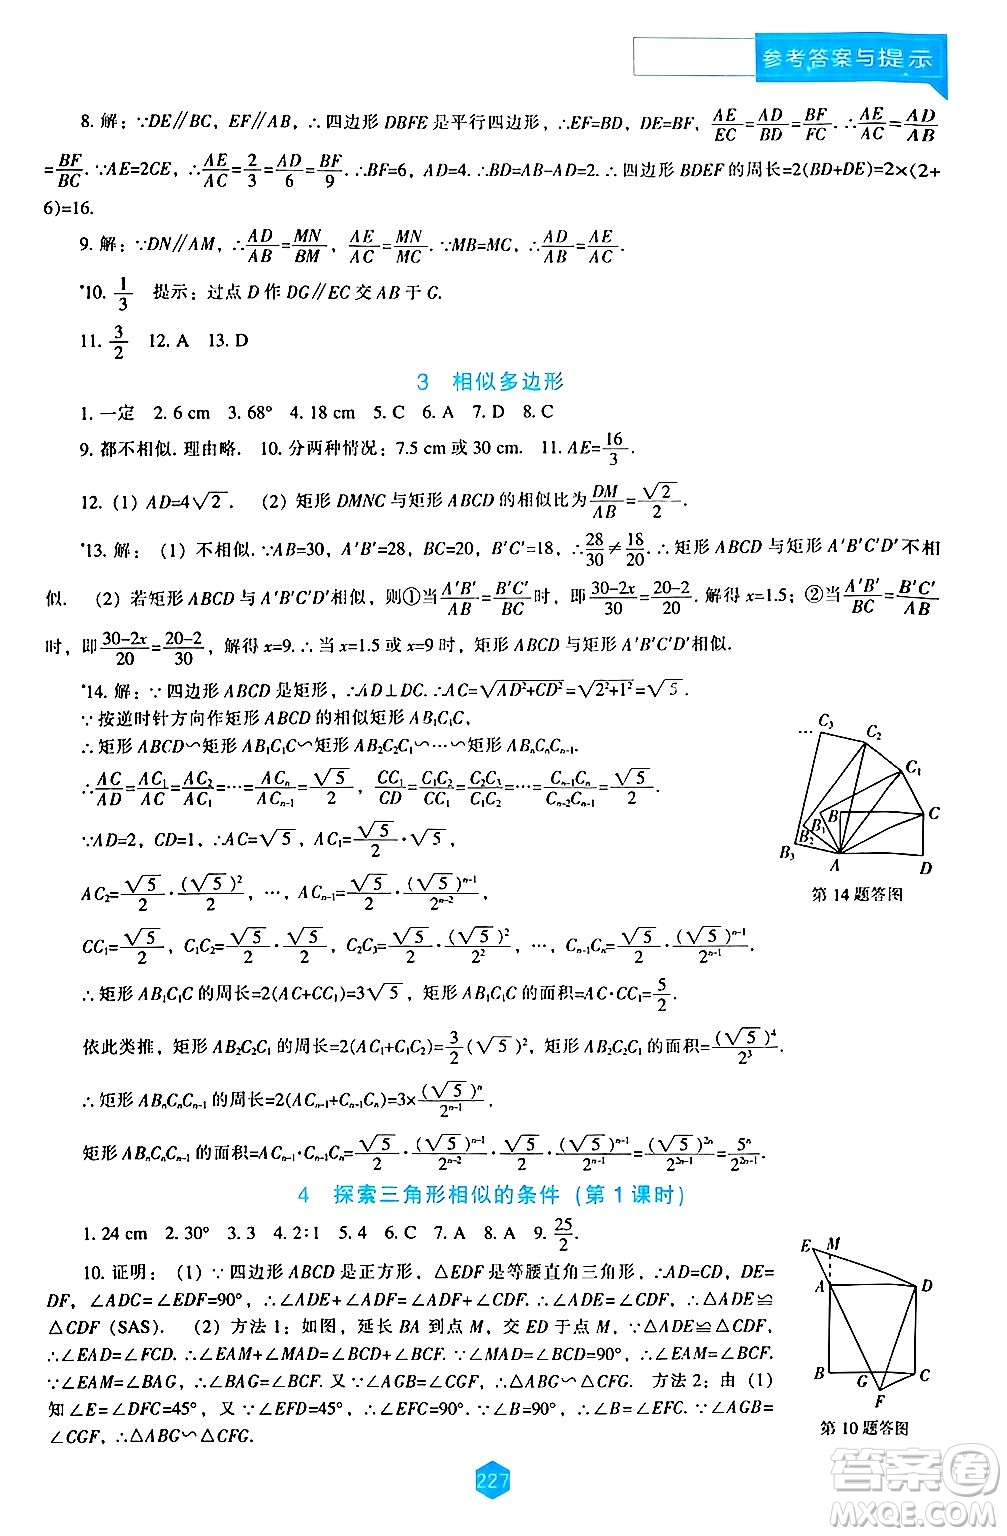 参考答案与提示
8. 解：∵DE∥BC，EF∥AB，∴四边形 DBFE 是平行四边形，∴EF=BD，DE=BF，AE/EC=AD/BD=BF/FC. ∴AE/AC=AD/AB
=BF/BC. ∵AE=2CE，∴AE/AC=2/3=AD/6=BF/9. ∴BF=6，AD=4. ∴BD=AB-AD=2. ∴四边形 BDEF 的周长=2(BD+DE)=2×(2+
6)=16.
9. 解：∵DN∥AM，∴AD/AB=MN/BM，AE/AC=MN/MC. ∵MB=MC，∴AD/AB=AE/AC.
*10. 1/3 提示：过点 D 作 DG∥EC 交 AB 于 G.
11. 3/2 12. A 13. D
3 相似多边形
1. 一定 2. 6 cm 3. 68° 4. 18 cm 5. C 6. A 7. D 8. C
9. 都不相似. 理由略. 10. 分两种情况：7.5 cm 或 30 cm. 11. AE=16/3.
12. (1) AD=4√2. (2) 矩形 DMNC 与矩形 ABCD 的相似比为 DM/AB=√2/2.
*13. 解：(1) 不相似. ∵AB=30，A′B′=28，BC=20，B′C′=18，∴28/30≠18/20. ∴矩形 ABCD 与矩形 A′B′C′D′不相
似. (2) 若矩形 ABCD 与 A′B′C′D′相似，则①当A′B′/AB=B′C′/BC时，即(30-2x)/30=(20-2)/20. 解得 x=1.5；②当A′B′/BC=B′C′/AB
时，即(30-2x)/20=(20-2)/30，解得 x=9. ∴当 x=1.5 或 x=9 时，矩形 ABCD 与矩形 A′B′C′D′相似.
*14. 解：∵四边形 ABCD 是矩形，∴AD⊥DC. ∴AC=√(AD²+CD²)=√(2²+1²)=√5.
∵按逆时针方向作矩形 ABCD 的相似矩形 AB₁C₁C，
∴矩形 ABCD∽矩形 AB₁C₁C∽矩形 AB₂C₂C₁∽…∽矩形 ABₙCₙCₙ₋₁.
∴AC/AD=AC₁/AC=AC₂/AC₁=…=ACₙ/ACₙ₋₁=√5/2，CC₁/CD=C₁C₂/CC₁=C₂C₃/C₁C₂=…=Cₙ₋₁Cₙ/Cₙ₋₂Cₙ₋₁=√5/2.
∵AD=2，CD=1，∴AC=√5，AC₁=√5/2·√5，
AC₂=√5/2·(√5)²/2，…，ACₙ₋₁=√5/2·(√5)ⁿ⁻¹/2ⁿ⁻²，
CC₁=√5/2，C₁C₂=√5/2·√5/2，C₂C₃=√5/2·(√5)²/2²，…，Cₙ₋₁Cₙ=√5/2·(√5)ⁿ⁻¹/2ⁿ⁻¹.
∴矩形 AB₁C₁C 的周长=2(AC+CC₁)=3√5，矩形 AB₁C₁C 的面积=AC·CC₁=5/2.
依此类推，矩形 AB₂C₂C₁ 的周长=2(AC₁+C₁C₂)=3/2(√5)²，矩形 AB₂C₂C₁ 的面积=(√5)⁴/2³.
∴矩形 ABₙCₙCₙ₋₁的周长=2(ACₙ₋₁+Cₙ₋₁Cₙ)=3×(√5)ⁿ/2ⁿ⁻¹.
矩形 ABₙCₙCₙ₋₁的面积=ACₙ₋₁·Cₙ₋₁Cₙ=√5/2·(√5)ⁿ⁻¹/2ⁿ⁻²·√5/2·(√5)ⁿ⁻¹/2ⁿ⁻¹=(√5)²ⁿ/2²ⁿ⁻¹=5ⁿ/2²ⁿ⁻¹.
… C₃ C₂ C₁ C B B₁ B₂ B₃ A D
第 14 题答图
4 探索三角形相似的条件（第 1 课时）
1. 24 cm 2. 30° 3. 3 4. 2∶1 5. D 6. C 7. A 8. A 9. 25/2.
10. 证明：(1) ∵四边形 ABCD 是正方形，△EDF 是等腰直角三角形，∴AD=CD，DE=
DF，∠ADC=∠EDF=90°，∴∠ADE+∠ADF=∠ADF+∠CDF，∴∠ADE=∠CDF，∴△ADE≌
△CDF (SAS). (2) 方法 1：如图，延长 BA 到点 M，交 ED 于点 M，∵△ADE≌△CDF，
∴∠EAD=∠FCD. ∴∠EAM+∠MAD=∠BCD+∠BCF. ∵∠MAD=∠BCD=90°，∴∠EAM=∠BCF.
∵∠EAM=∠BAG，∴∠BAG=∠BCF. 又∵∠AGB=∠CGF，∴△ABG∽△CFG. 方法 2：由 (1)
知∠E=∠DFC=45°，又∵∠EFD=45°，∴∠EFC=90°. ∵∠B=90°，∴∠EFC=∠B. 又∵∠AGB=
∠CGF，∴△ABG∽△CFG.
E M A D B G C F
第 10 题答图
227
答案卷
MXQE.COM